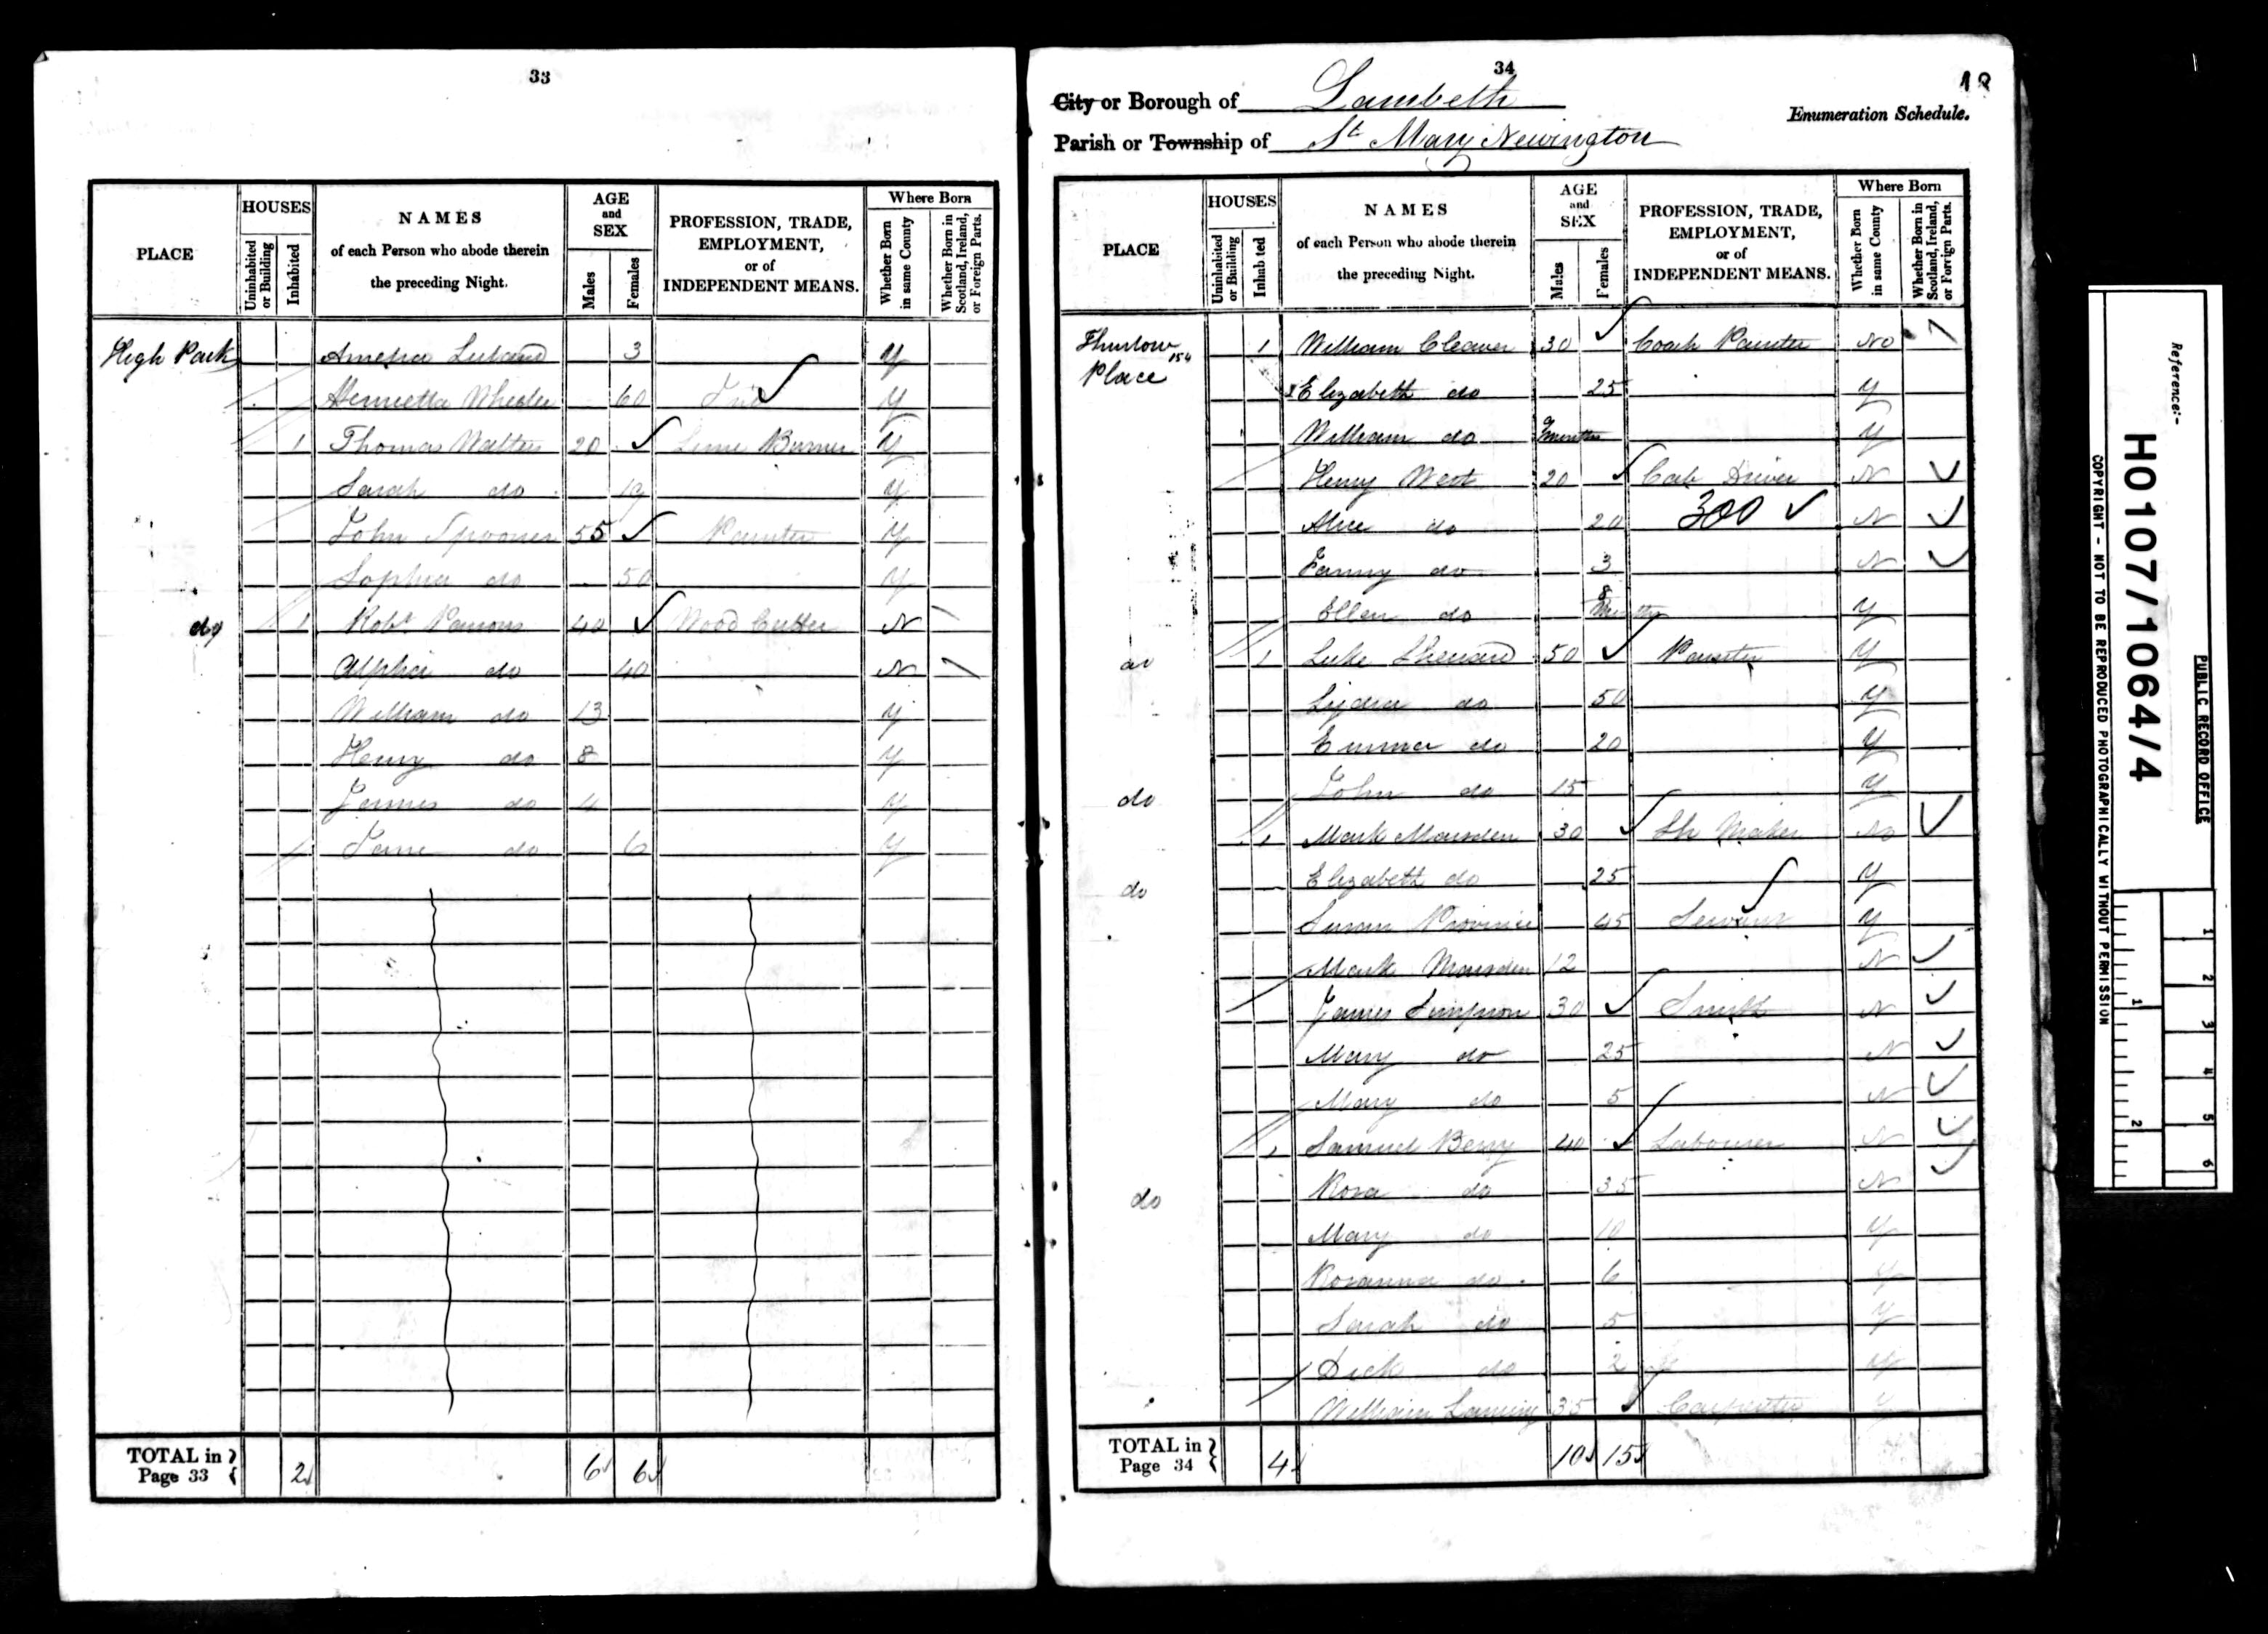 33
PLACE
HOUSES
Uninhabited or Building
Inhabited
NAMES
of each Person who abode therein
the preceding Night.
AGE
and
SEX
Males
Females
PROFESSION, TRADE,
EMPLOYMENT,
or of
INDEPENDENT MEANS.
Where Born
Whether Born in same County
Whether Born in Scotland, Ireland, or Foreign Parts.
High Park 3 Y
Henrietta Wheeler 60 Ind Y
1 Thomas Walters 20 Lime Burner Y
Sarah do 19 Y
John Spooner 55 Painter Y
Sophia do 50 Y
do 1 Robt Parsons 40 Wood Cutter N
do 40 N
William do 13 Y
Henry do 8 Y
James do 4 Y
Jane do 6 Y
TOTAL in
Page 33 2 6 6
34
18
City or Borough of Lambeth
Enumeration Schedule.
Parish or Township of St Mary Newington
PLACE
HOUSES
Uninhabited or Building
Inhabited
NAMES
of each Person who abode therein
the preceding Night.
AGE
and
SEX
Males
Females
PROFESSION, TRADE,
EMPLOYMENT,
or of
INDEPENDENT MEANS.
Where Born
Whether Born in same County
Whether Born in Scotland, Ireland, or Foreign Parts.
Thurlow 1 William Cleaver 30 Coach Painter No
Place 154 Elizabeth do 25 Y
William do months Y
Henry West 20 Cab Driver N
Alice do 20 300 N
Fanny do 3 N
Ellen do 8 Months Y
do 1 Luke 50 Painter Y
Lydia do 50 Y
Emma do 20 Y
do John do 15 Y
1 Mark Marsden 30 Sh Maker No
do Elizabeth do 25 Y
Susan Province 45 Servant Y
Mark Marsden 12 N
James Simpson 30 Smith N
Mary do 25 N
Mary do 5 N
1 Samuel Berry 40 Labourer N
do Rosa do 35 N
Mary do 10 Y
Rosanna do 6 Y
Sarah do 5 Y
Dick do 2 Y
William 35 Carpenter Y
TOTAL in
Page 34 4 10 15
Reference:-
HO107/1064/4
PUBLIC RECORD OFFICE
COPYRIGHT - NOT TO BE REPRODUCED PHOTOGRAPHICALLY WITHOUT PERMISSION
1 2 3 4 5 6
1 2